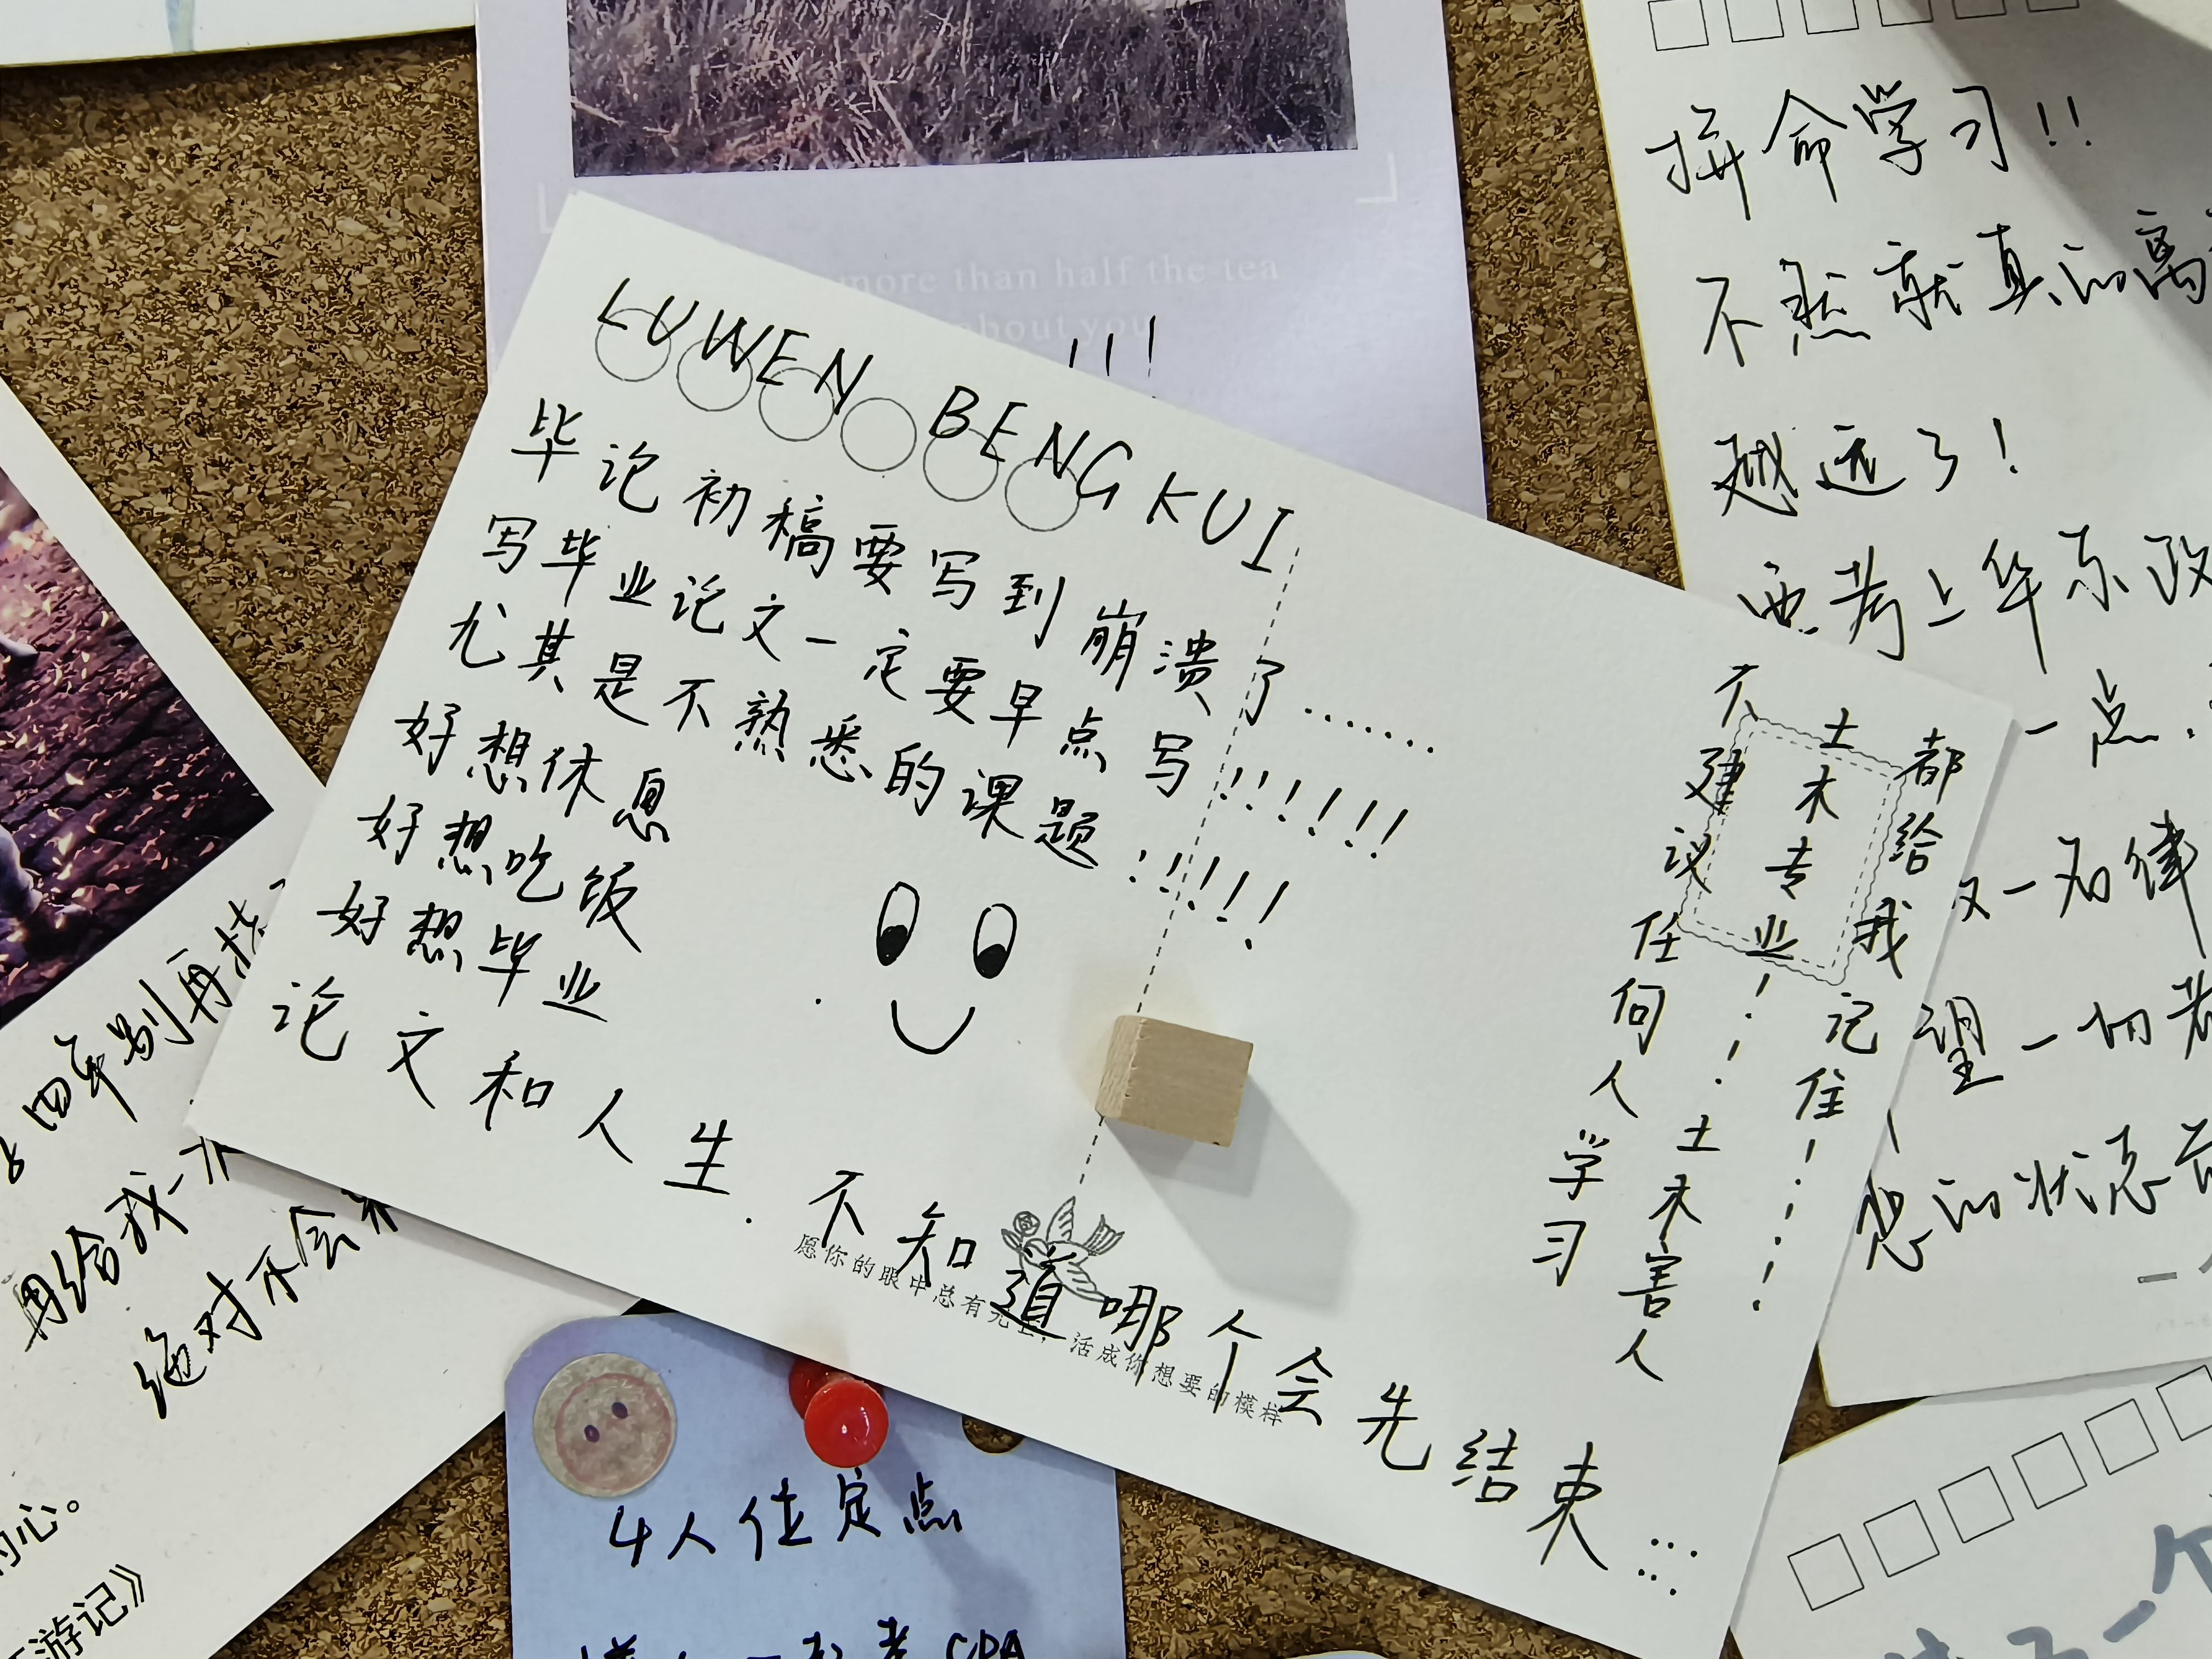 more than half the tea
about you
!!!
LUWEN BENG KUI
毕论初稿要写到崩溃了......
写毕业论文一定要早点写!!!!!!
尤其是不熟悉的课题!!!!!
好想休息
好想吃饭
好想毕业
论文和人生.不知道哪个会先结束......
不建议任何人学习
土木专业!!土木害人
都给我记住!!!!
愿你的眼中总有光芒，活成你想要的模样
拼命学习!!
不然就真的离
越远了!
要考上华东政
一点.
一名律
望一切考
您的状态
四年别再
再给我一次
绝对不会
的心。
游记》
4人位定点
考CPA
一个